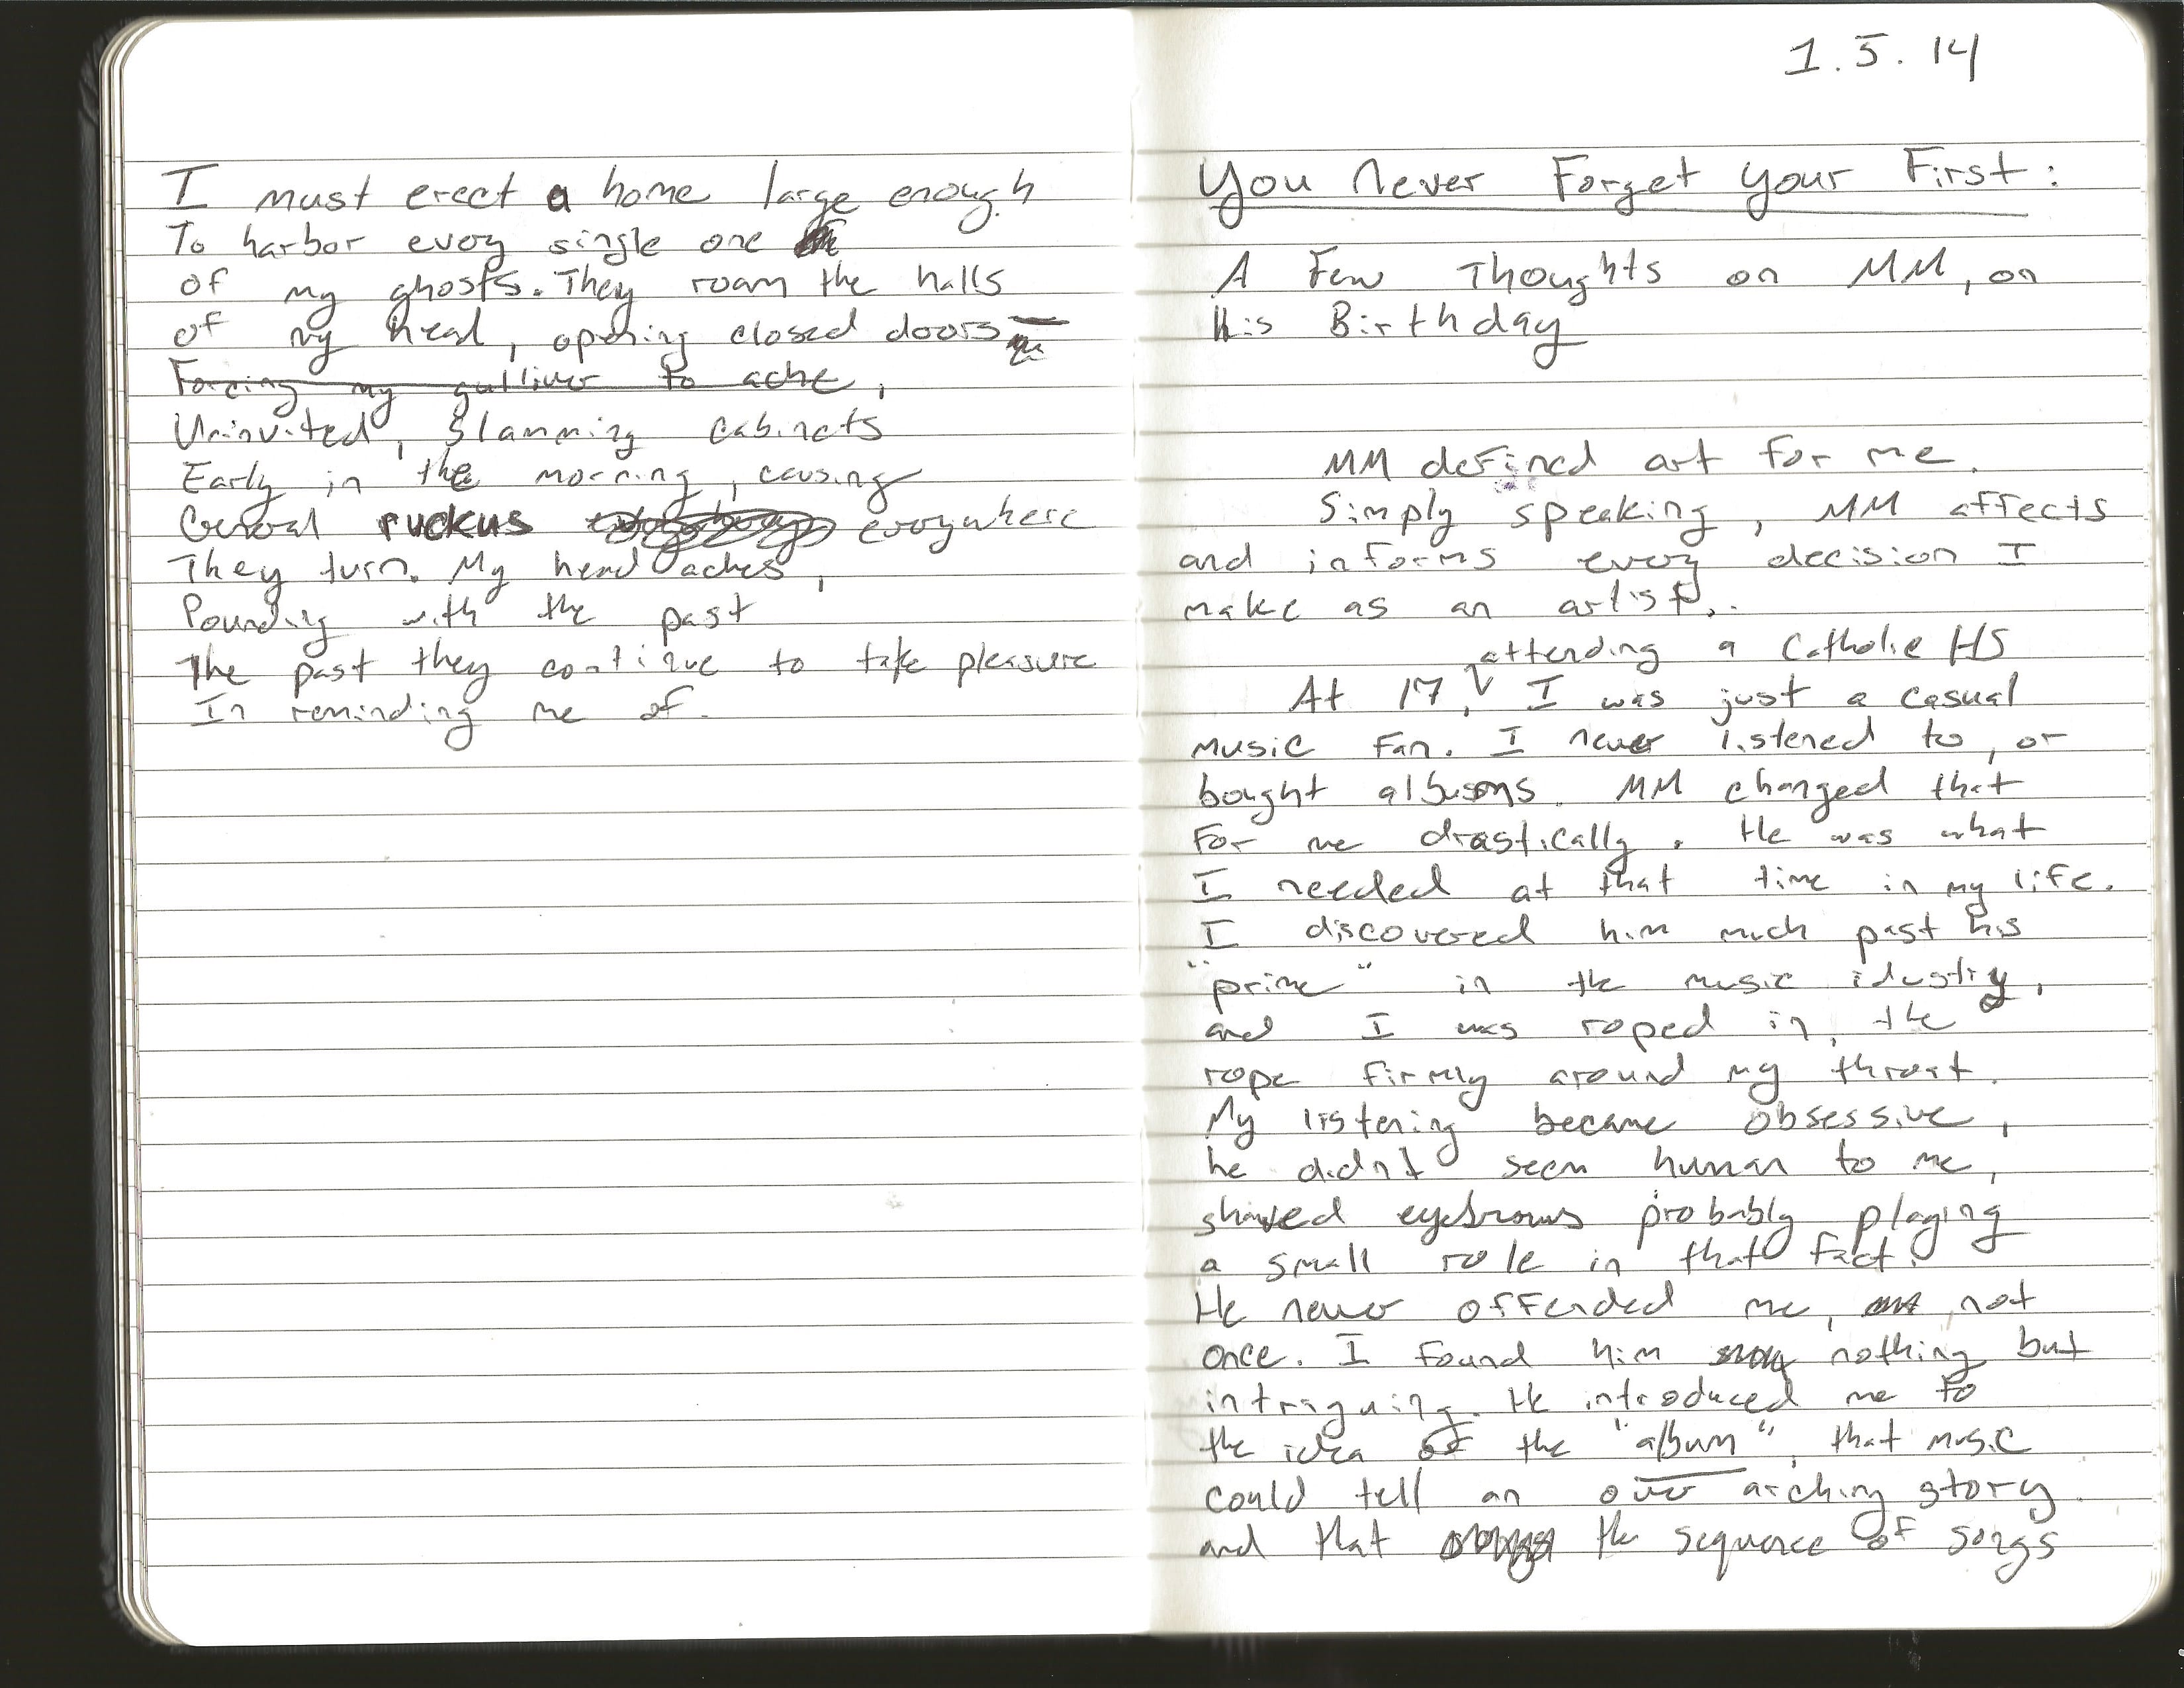 I must erect a home large enough
To harbor every single one
of my ghosts. They roam the halls
of my head, opening closed doors
Forcing my gulliver to ache,
Uninvited, slamming cabinets
Early in the morning, causing
General ruckus everywhere
They turn. My head aches,
Pounding with the past
The past they continue to take pleasure
In reminding me of.
1.5.14
You Never Forget Your First:
A Few Thoughts on MM, on
His Birthday
MM defined art for me.
Simply speaking, MM affects
and informs every decision I
make as an artist.
attending a Catholic HS
At 17, I was just a casual
music fan. I never listened to, or
bought albums. MM changed that
for me drastically. He was what
I needed at that time in my life.
I discovered him much past his
"prime" in the music idustry,
and I was roped in, the
rope firmly around my throat.
My listening became obsessive,
he didn't seem human to me,
shaved eyebrows probably playing
a small role in that fact.
He never offended me, not
once. I found him nothing but
intriguing. He introduced me to
the idea of the "album", that music
could tell an over arching story
and that the sequence of songs